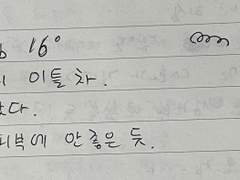 16°
이틀차.
다.
피부에 안좋은 듯.